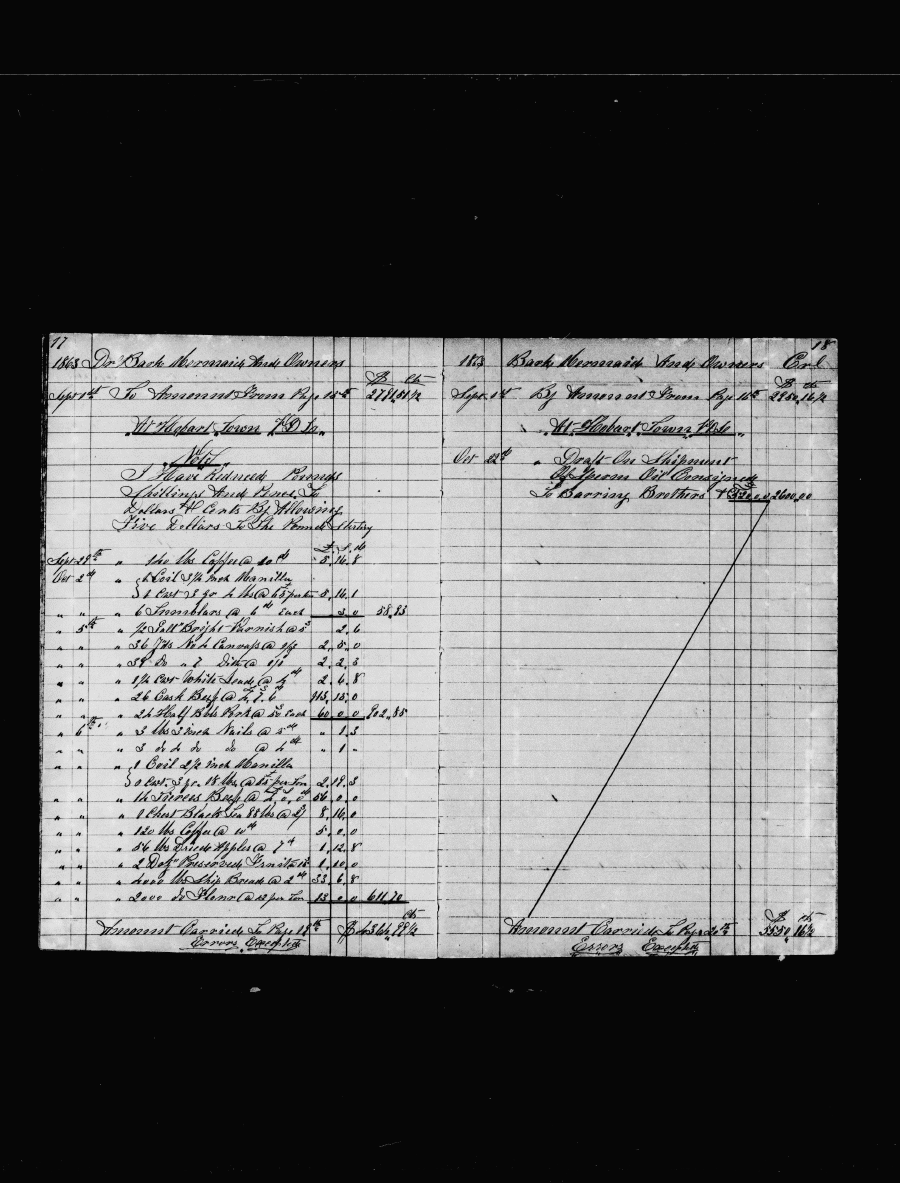 17
1863 Dr Bark Mermaid And Owners
$ cts
Sept 1st To Amount From Page 15th 2791,51 1/2
"At Hobart Town V D L"
"Note"
I Have Reduced Pounds
Shillings And Pence To
Dollars & Cents By Allowing
Five Dollars To The Pound Sterling
£ s d
Sept 29th " 140 lbs Coffee @ 10d 5,16,8
Oct 2d " 1 Coil 3 1/2 inch Manilla
1 Cwt 3 qr 4 lbs @ 65s per 5,16,1
" " " 6 Tumblers @ 6d Each 3,0 58,85
" 5th " 1/2 Gall Bright Varnish @ 5s 2,6
" " " 36 Yds No 4 Canvass @ 1/3 2,5,0
" " " 39 Do " 7 Ditto @ 1/1 2,2,3
" " " 1/2 Cwt White Lead @ 2,6,8
" " " 26 Cask Beef @ 4,7,6 113,15,0
" " " 24 Half Bbls Pork @ 50s Each 60,0,0 902,85
" 6th " 3 lbs 3 inch Nails @ 5d " 1,3
" " " 3 do 4 do do @ 4d " 1 "
" " " 1 Coil 2 1/2 inch Manilla
0 Cwt. 3 qr. 18 lbs. @ 65s per 2,19,3
" " " 14 Tierces Beef @ 4,0,0 56,0,0
" " " 1 Chest Black Tea 88 lbs @ 2/ 8,16,0
" " " 120 lbs Coffee @ 10d 5,0,0
" " " 56 lbs Dried Apples @ 7d 1,12,8
" " " 2 Doz Preserved Fruits 1,10,0
" " " 4000 lbs Ship Bread @ 2d 33,6,8
" " " 2000 do Flour @ 13 per Ton 13,0,0 611,70
cts
Amount Carried To Page 19th $ 4364,92 1/2
Errors Excepted
18
1863 Bark Mermaid And Owners Cr
$ cts
Sept 1st By Amount From Page 16th 2950,16 1/2
"At Hobart Town V D L"
Oct 22d " Draft On Shipment
Of Sperm Oil Consigned
To Barring Brothers £ 520,0,0 2600,00
$ cts
Amount Carried To Page 20th 5550,16 1/2
Errors Excepted